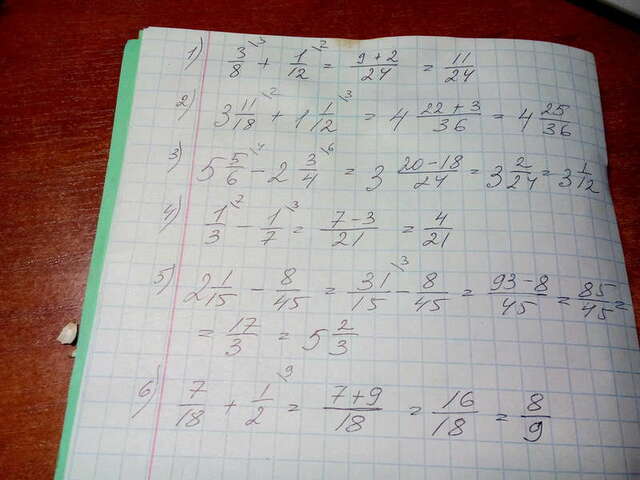 1) 3/8 \3 + 1/12 \2 = (9+2)/24 = 11/24
2) 3 11/18 \2 + 1 1/12 \3 = 4 (22+3)/36 = 4 25/36
3) 5 5/6 \4 - 2 3/4 \6 = 3 (20-18)/24 = 3 2/24 = 3 1/12
4) 1/3 \7 - 1/7 \3 = (7-3)/21 = 4/21
5) 2 1/15 - 8/45 = 31/15 \3 - 8/45 = (93-8)/45 = 85/45 =
= 17/3 = 5 2/3
6) 7/18 + 1/2 \9 = (7+9)/18 = 16/18 = 8/9